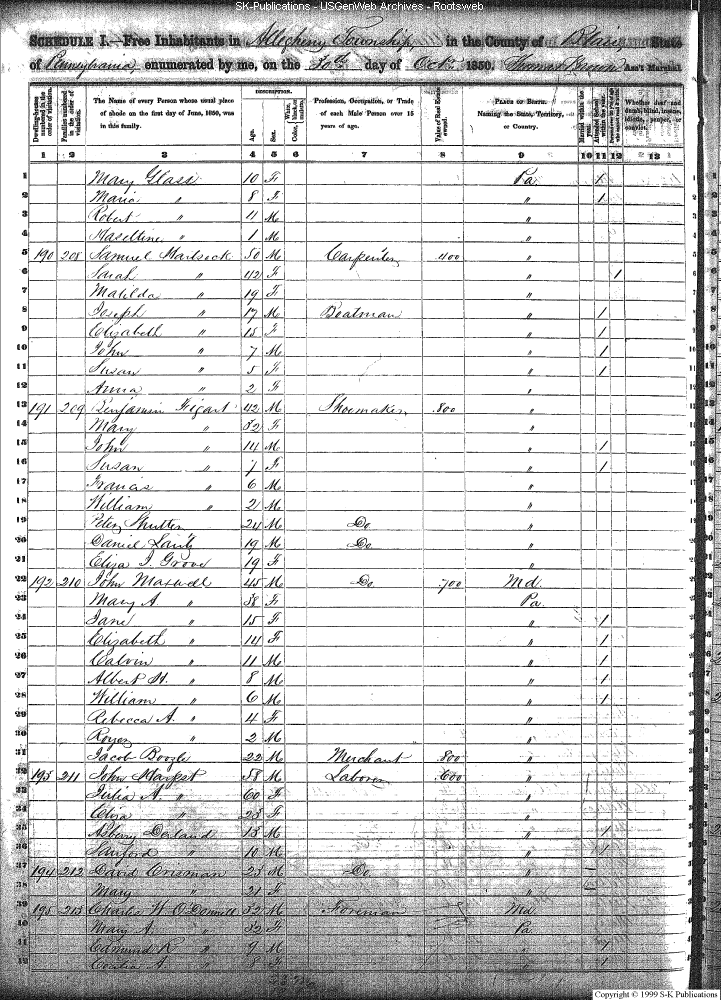 SK-Publications - USGenWeb Archives - Rootsweb
SCHEDULE I.—Free Inhabitants in Allegheny Township, in the County of Blair, State
of Pennsylvania, enumerated by me, on the 30th day of Octr. 1850. Thomas Ass't Marshal.
Dwelling-houses numbered in the order of visitation. Families numbered in the order of visitation. The Name of every Person whose usual place of abode on the first day of June, 1850, was in this family. DESCRIPTION. Age. Sex. Color, White, black, or mulatto. Profession, Occupation, or Trade of each Male Person over 15 years of age. Value of Real Estate owned. PLACE OF BIRTH. Naming the State, Territory, or Country. Married within the year. Attended School within the year. Whether deaf and dumb, blind, insane, idiotic, pauper, or convict.
1 2 3 4 5 6 7 8 9 10 11 12 13
1 Mary Glass 10 F Pa 1
2 Maria " 8 F " 1
3 Robert " 4 M "
4 Haseltine " 1 M "
5 190 208 Samuel 50 M Carpenter 400 "
6 Sarah " 42 F " 1
7 Matilda " 19 F "
8 Joseph " 17 M Boatman " 1
9 Elizabeth " 15 F " 1
10 John " 7 M " 1
11 Susan " 5 F " 1
12 Anna " 2 F "
13 191 209 Benjamin Figart 42 M Shoemaker 800 "
14 Mary " 32 F "
15 John " 14 M " 1
16 Susan " 7 F " 1
17 Francis " 6 M "
18 William " 2 M "
19 Peter 24 M Do "
20 Daniel Lantz 19 M Do "
21 Eliza J. Grove 19 F "
22 192 210 John Maxwell 45 M Do 700 Md.
23 Mary A. " 38 F Pa.
24 Jane " 15 F " 1
25 Elizabeth " 14 F " 1
26 Calvin " 11 M " 1
27 Albert H. " 8 M " 1
28 William " 6 M " 1
29 Rebecca A. " 4 F "
30 Royer " 2 M "
31 Jacob 22 M Merchant 800 "
32 193 211 John 58 M Laborer 600 "
33 Julia A. " 60 F "
34 Eliza " 23 F "
35 Asbury Dorland 13 M " 1
36 Sanford " 10 M " 1
37 194 212 David Crisman 23 M Do "
38 Mary " 21 F "
39 195 213 Charles W. O'Donnell 32 M Foreman Md
40 Mary A. " 32 F Pa
41 Edmund R " 9 M " 1
42 Cecilia A. " 8 F " 1
Copyright © 1999 S-K Publications